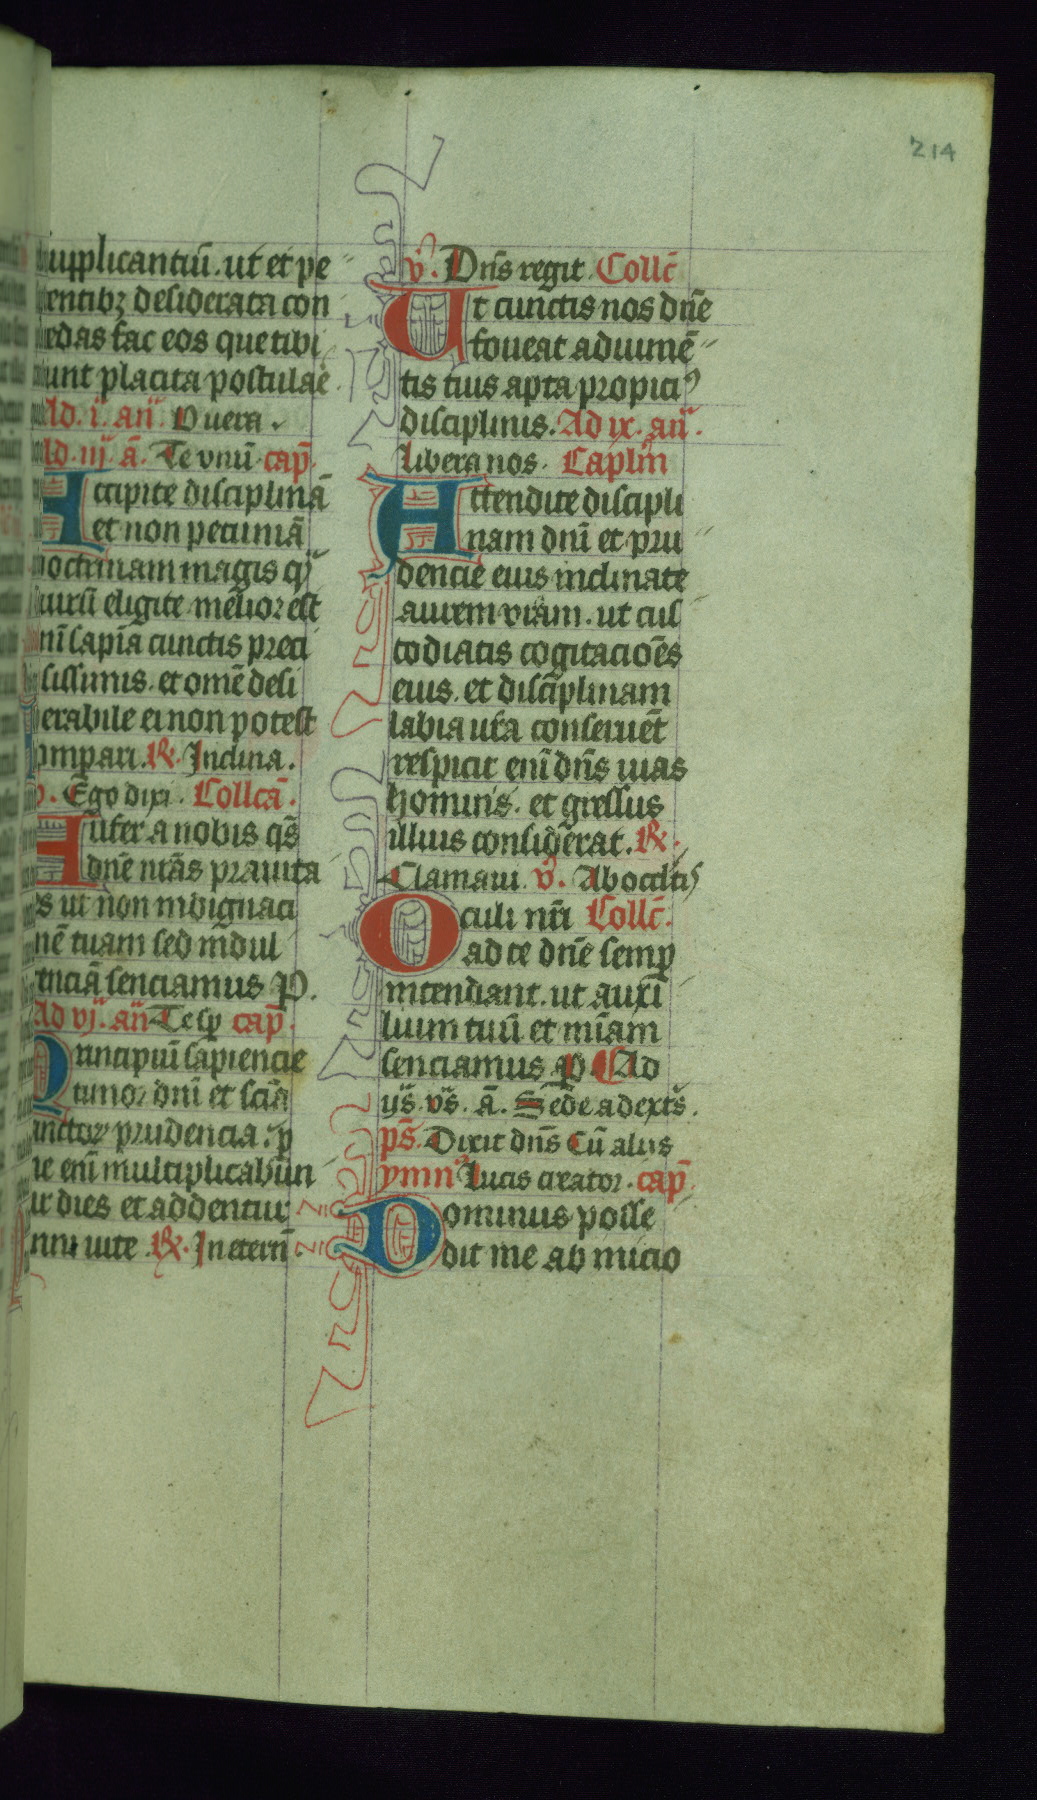 214
supplicantiū. ut et pe
tentibꝫ desiderata con
cedas fac eos que tibi
sunt placita postulāe
Ad. i. añ. O vera.
Ad. iij. ā. Te vnū. cap̄.
Accipite disciplinā
et non pecuniā
doctrinam magis q̄
aurū eligite melior est
eni sapīa cunctis preci
osissimis. et omē desi
derabile ei non potest
compari. ℟. Inclina.
v. Ego dixi. Collcā.
Aufer a nobis qs̄
dn̄e nr̄as prauita
tes ut non indignaci
onē tuam sed īndul
genciā senciamus P.
Ad vj. añ Te sꝑ cap̄.
Principiū sapiencie
timor dn̄i et scīa
sanctoꝝ prudencia. ꝑ
me enī multiplicabūn
tur dies et addentur
anni uite. ℟. In eternū
v̄. Dn̄s regit. Collc̄
Ut cunctis nos dn̄e
foueat adiumē
tis tuis apta propiciꝰ
disciplinis. Ad ix. añ.
libera nos. Caplm̄
Attendite discipli
nam dn̄i et pru
dencie eius inclinate
aurem vr̄am. ut cus
todiatis cogitacōes
eius. et discīplinam
labia ur̄a conseruēt
respicit enī dn̄s uias
hominis. et gressus
illius considerat. ℟.
Clamaui. v̄. Ab occultꝭ
Oculi nr̄i Collc̄.
ad te dn̄e semꝑ
intendant. ut auxi
lium tuū et mīam
senciamus. p. Ad
ijs. vs̄. ā. Sede a dextꝭs.
ps̄. Dixit dn̄s cū alijs
ymnꝰ Lucis creator. cap̄.
Dominus posse
dit me ab inicio